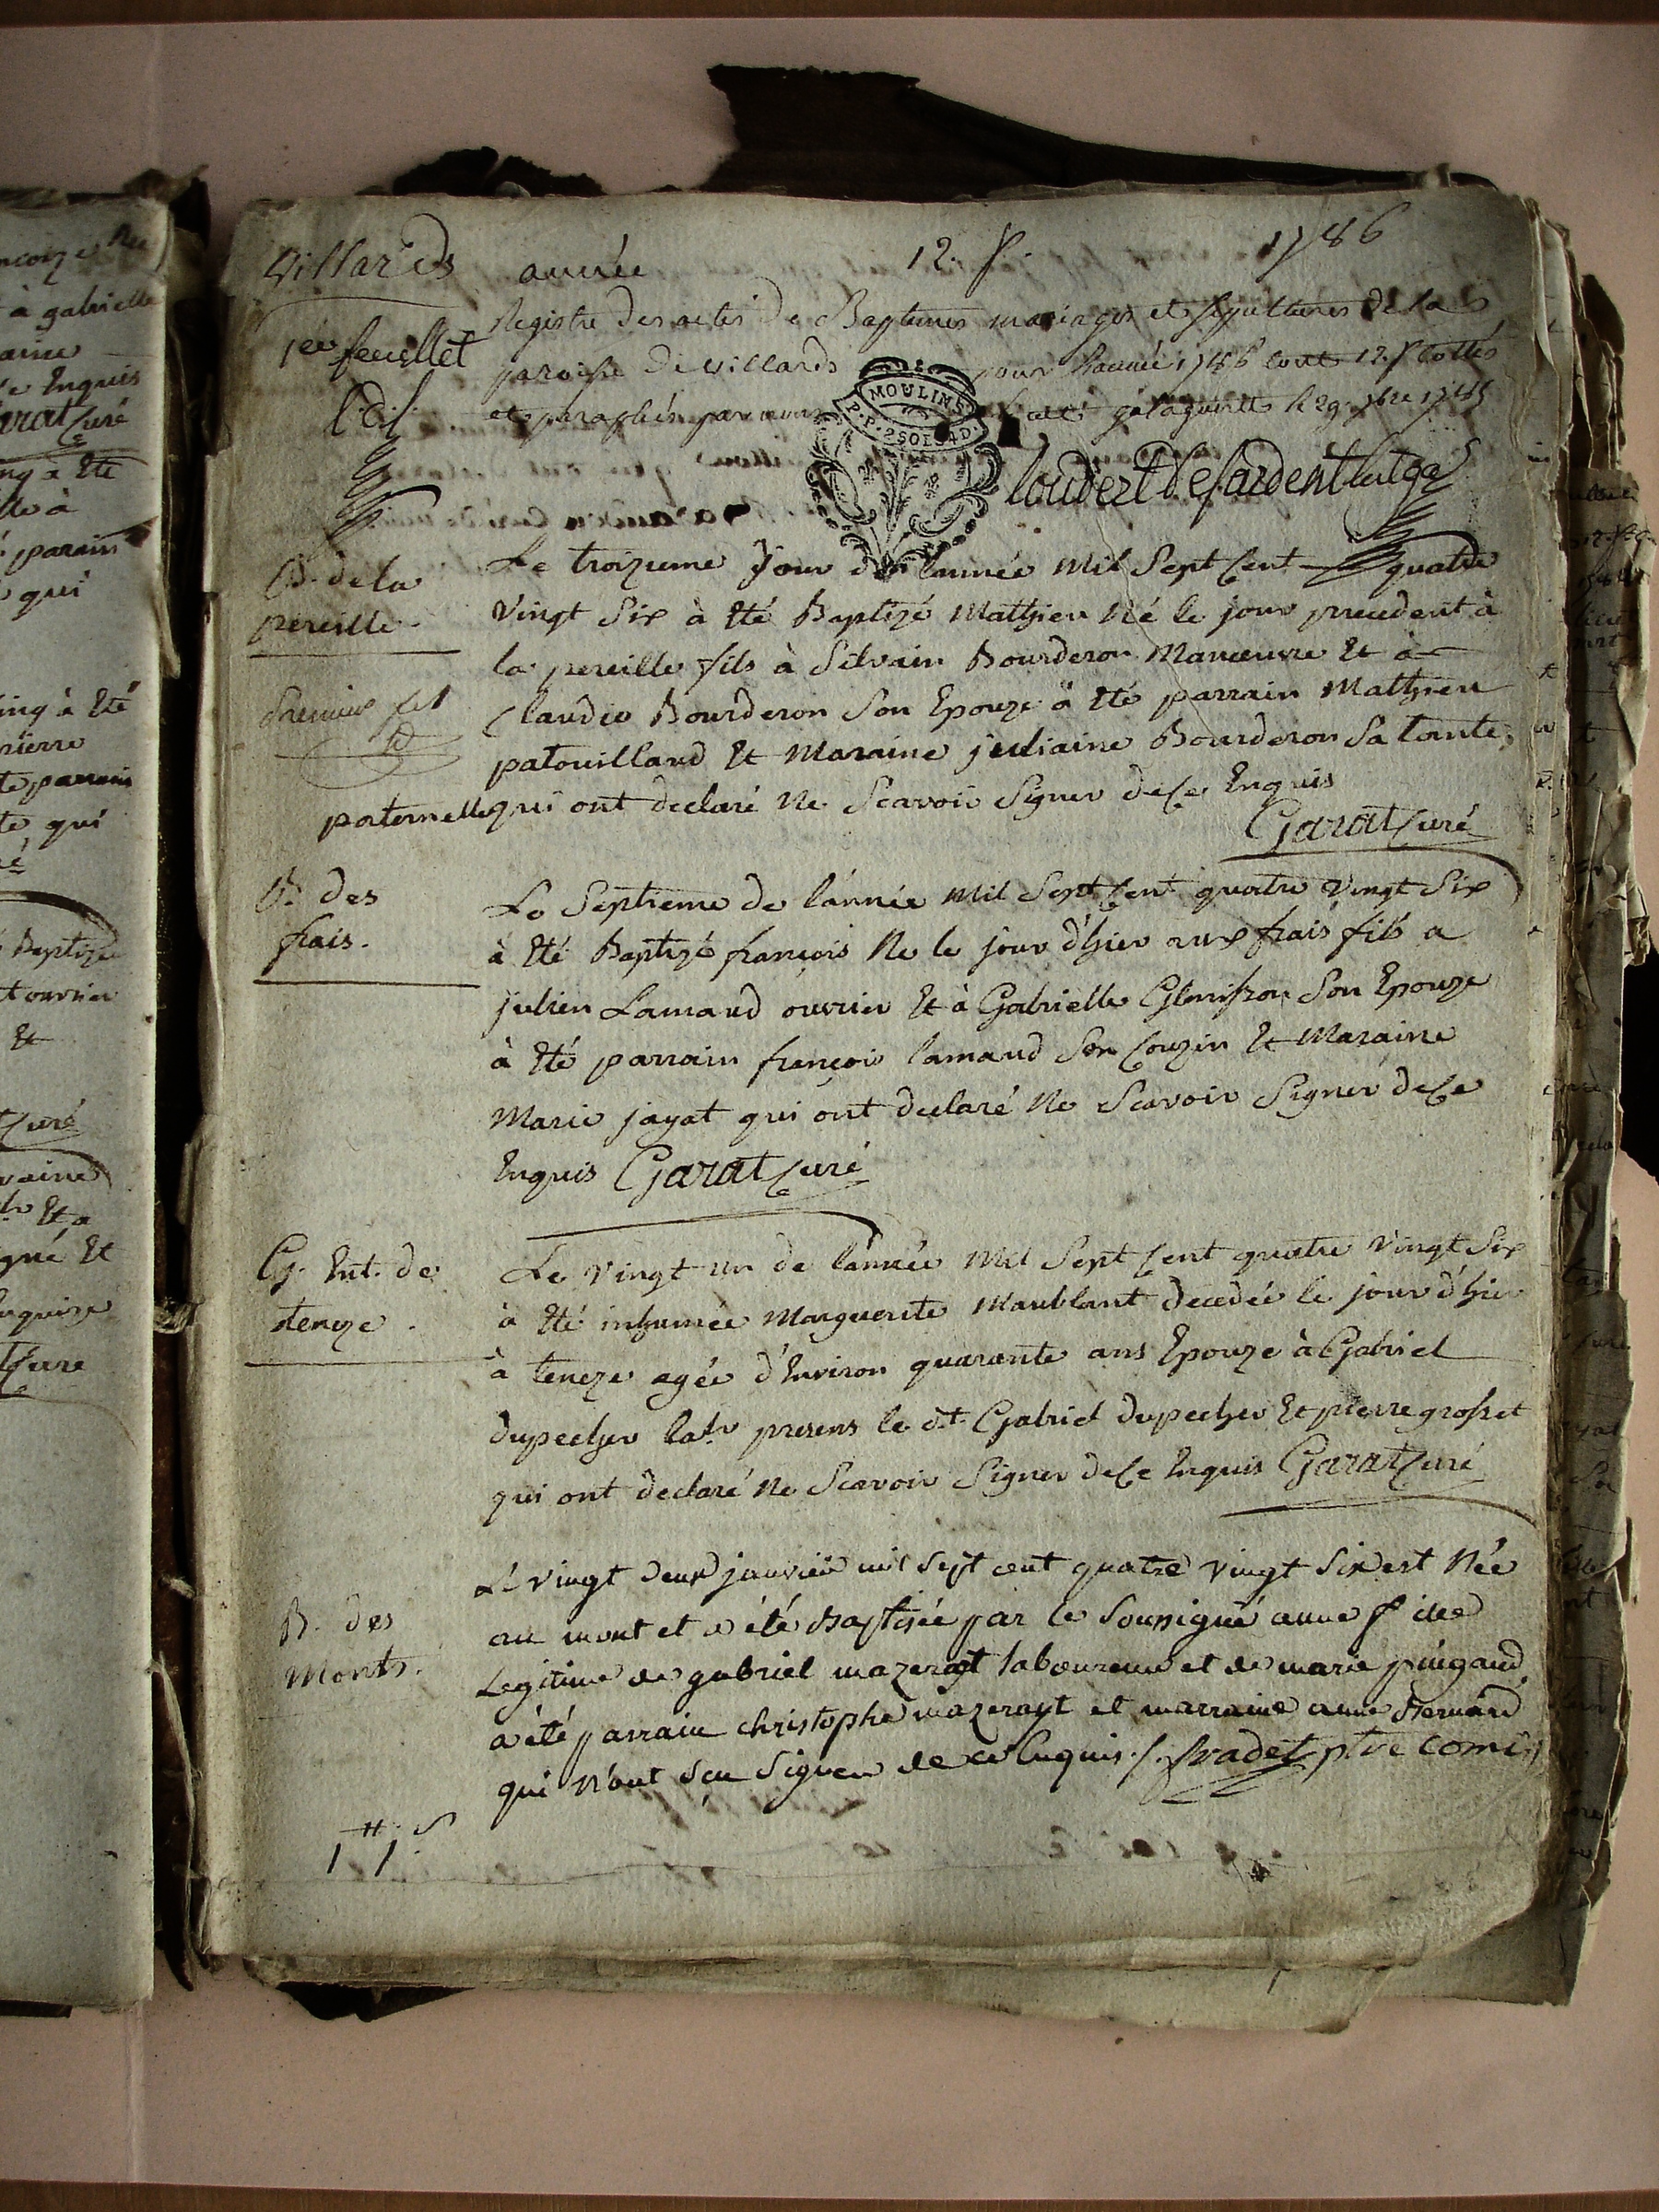 Villards année 12. f. 1786
1er feuillet
Registre des actes de Baptemes mariages et sepultures de la
paroisse de villards pour l'année 1786 cont. 12. f. cottés
et paraphés par nous le 29. 9bre 1785
MOULINS
P.P. 2 SOLS 4 D.
B. de la
pereille.
Le troizieme Jour de l'année Mil Sept Cent quatre
vingt Six à Eté Baptizé Mathieu Né le jour precedent à
la pereille fils à Silvain Bourderon Manœuvre Et à
Claudie Bourderon Son Epouze à Eté parrain Mathieu
patouillaud Et Maraine juliaine Bourderon Sa tante
paternelle qui ont declaré Ne Scavoir Signer de Ce Enquis
Garat Curé
premier f.et
B. des
frais.
Le Septieme de l'année Mil Sept Cent quatre vingt Six
à Eté Baptizé françois Né le jour d'hier aux frais fils a
julien Lamaud ouvrier Et à Gabrielle Glenisson Son Epouze
à Eté parrain françois lamaud Son Couzin Et Maraine
Marie jayat qui ont declaré Ne Scavoir Signer de Ce
Enquis Garat Curé
G. Ent. de
teneze.
Le vingt un de l'année Mil Sept Cent quatre vingt Six
à Eté inhumée Marguerite Maublant decedée le jour d'hier
à teneze agée d'Environ quarante ans Epouze à Gabriel
dupecher labr presens le dt. Gabriel dupecher Et pierre grosset
qui ont declaré Ne Scavoir Signer de Ce Enquis Garat Curé
B. des
Monts.
Le vingt deux janvier mil sept cent quatre vingt Six est Née
au mont et a été Baptisée par le Soussigné anne fille
Legitime de gabriel mazerayt laboureur et de marie pingaud
a été parrain christophe mazerayt et marraine anne Bernard
qui n'ont sçu Signer de ce Enquis. /. fradet ptre comis